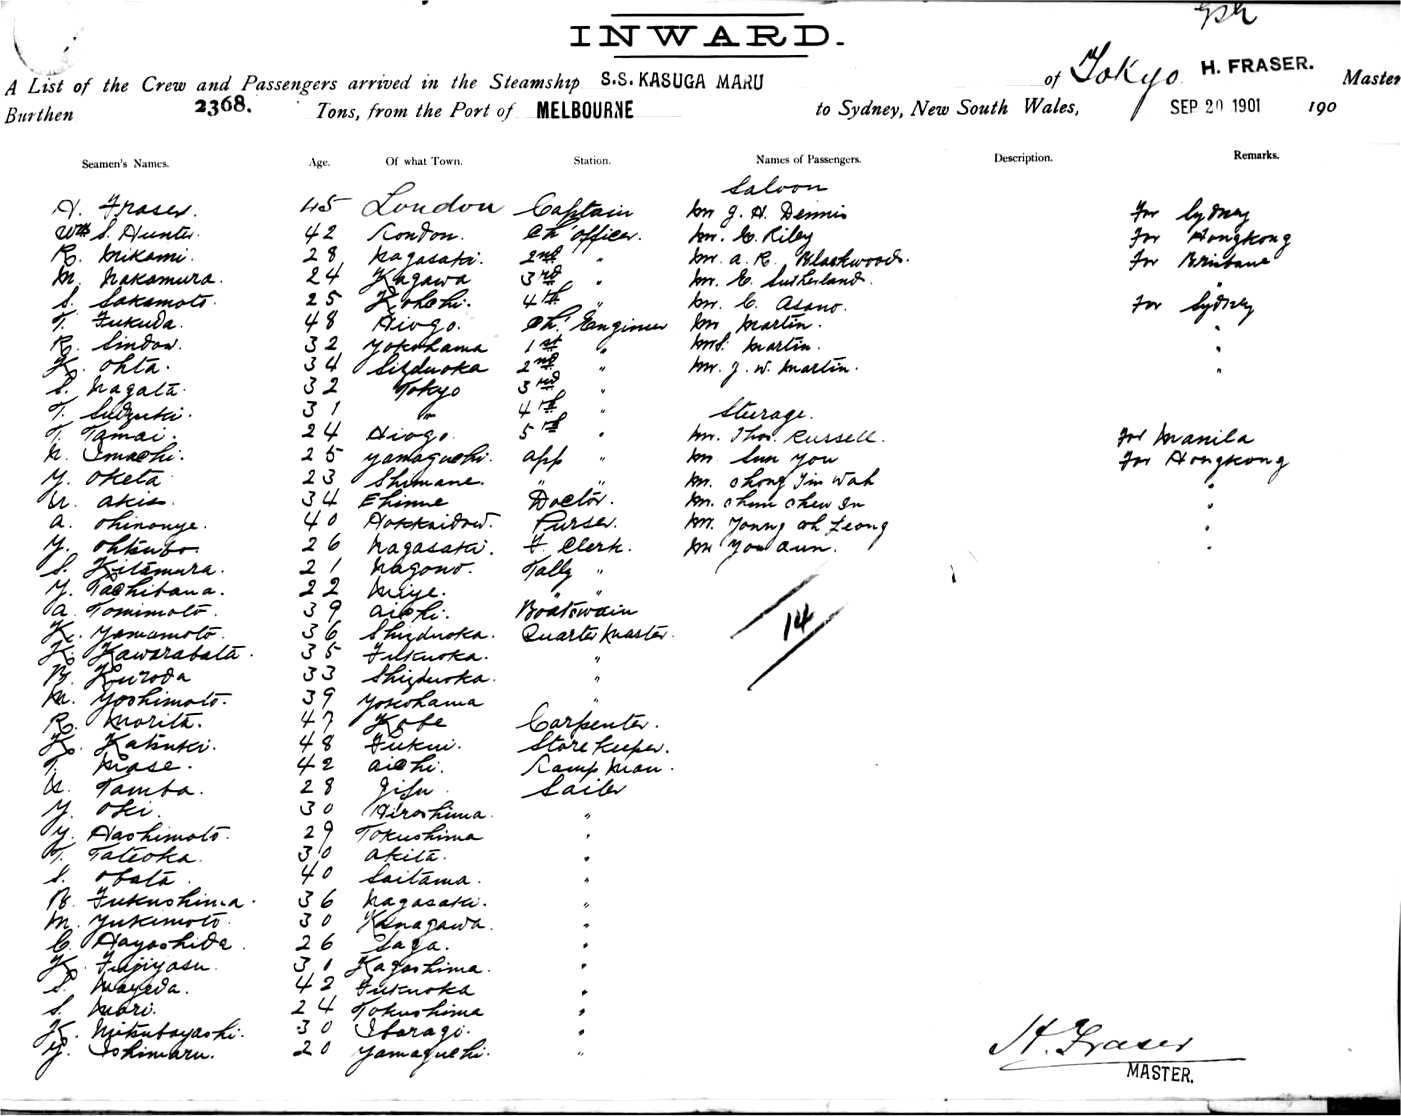 INWARD.
A List of the Crew and Passengers arrived in the Steamship S.S. KASUGA MARU of Tokyo H. FRASER. Master
Burthen 2368. Tons, from the Port of MELBOURNE to Sydney, New South Wales, SEP 20 1901 190
Seamen's Names. Age. Of what Town. Station. Names of Passengers. Description. Remarks.
Saloon
H. Fraser. 45 London Captain Mr J. H. Dennis For Sydney
Wm S. Hunter 42 London. Ch Officer. Mr. G. Riley For Hongkong
R. Mikami. 28 Nagasaki. 2nd " Mr. A. R. Blackwood. For Brisbane
M. Nakamura. 24 Kagawa 3rd " Mr. E. Sutherland. "
S. Sakamoto. 25 Kohchi. 4th " Mr. C. Asano. For Sydney
T. Fukuda. 48 Hiogo. Ch. Engineer Mr Martin. "
R. Sindow. 32 Yokohama 1st " Mrs. Martin. "
K. Ohta. 34 Sizduoka 2nd " Mr. J. W. Martin. "
S. Nagata. 32 Tokyo 3rd "
T. Sudzuki. 31 " 4th " Sturage.
T. Tamai. 24 Hiogo. 5th " Mr. Thos. Russell. For Manila
N. Imachi. 25 Yamaguchi. App " Mr Sun You For Hongkong
Y. Oketa 23 Shimane. " " Mr. Chong Jin Wah "
U. Akis 34 Ehime Doctor. Mr. Chun Chew In "
A. Ohinouye. 40 Hokkaidow. Purser. Mr. Young Ah Leong "
Y. Ohtsubo 26 Nagasaki. F. Clerk. Mr You Aun. "
S. Kitamura. 21 Nagono. Tally "
Y. Tachibana. 22 Miye. " "
A. Tomimoto. 39 Aichi. Boatswain
K. Yamamoto. 36 Shizduoka. Quarter Master. 14
K. Kawarabata. 35 Fukuoka. "
B. Kuroda 33 Shizduoka. "
M. Yoshimoto. 39 Yokohama "
R. Morita. 47 Kobe Carpenter.
K. Katsuki. 48 Fukui. Store Keeper.
T. Mase. 42 Aichi. Lamp Man.
U. Tamba. 28 Gifu. Sailer
Y. Oki. 30 Hiroshima. "
Y. Hashimoto. 29 Tokushima "
T. Tateoka. 30 Akita. "
S. Obata. 40 Saitama. "
B. Fukushima. 36 Nagasaki. "
M. Yukimoto. 30 Kanagawa. "
C. Hayashida. 26 Saga. "
K. Fujiyasu. 31 Kagoshima. "
S. Mayeda. 42 Fukuoka "
S. Mori. 24 Tokushima "
K. Mitsubayashi. 30 Ibaragi. "
Y. Ishimaru. 20 Yamaguchi. "
H. Fraser
MASTER.